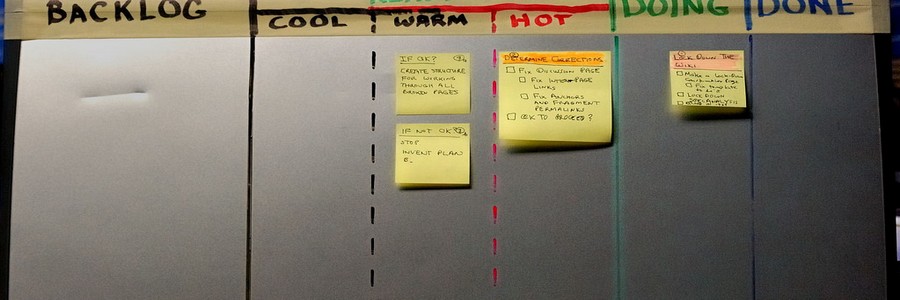 BACKLOG
COOL
WARM
HOT
DOING
DONE
IF OK?
CREATE STRUCTURE
FOR WORKING
THROUGH ALL
BROKEN PAGES
IF NOT OK?
STOP
INVENT PLAN
B.
DETERMINE CORRECTIONS
FIX DECISION PAGE
FIX INTERPAGE
LINKS
FIX ANCHORS
AND FRAGMENT
PERMALINKS
OK TO PROCEED?
LOCK DOWN THE
WIKI
FIX template
LOCK DOWN